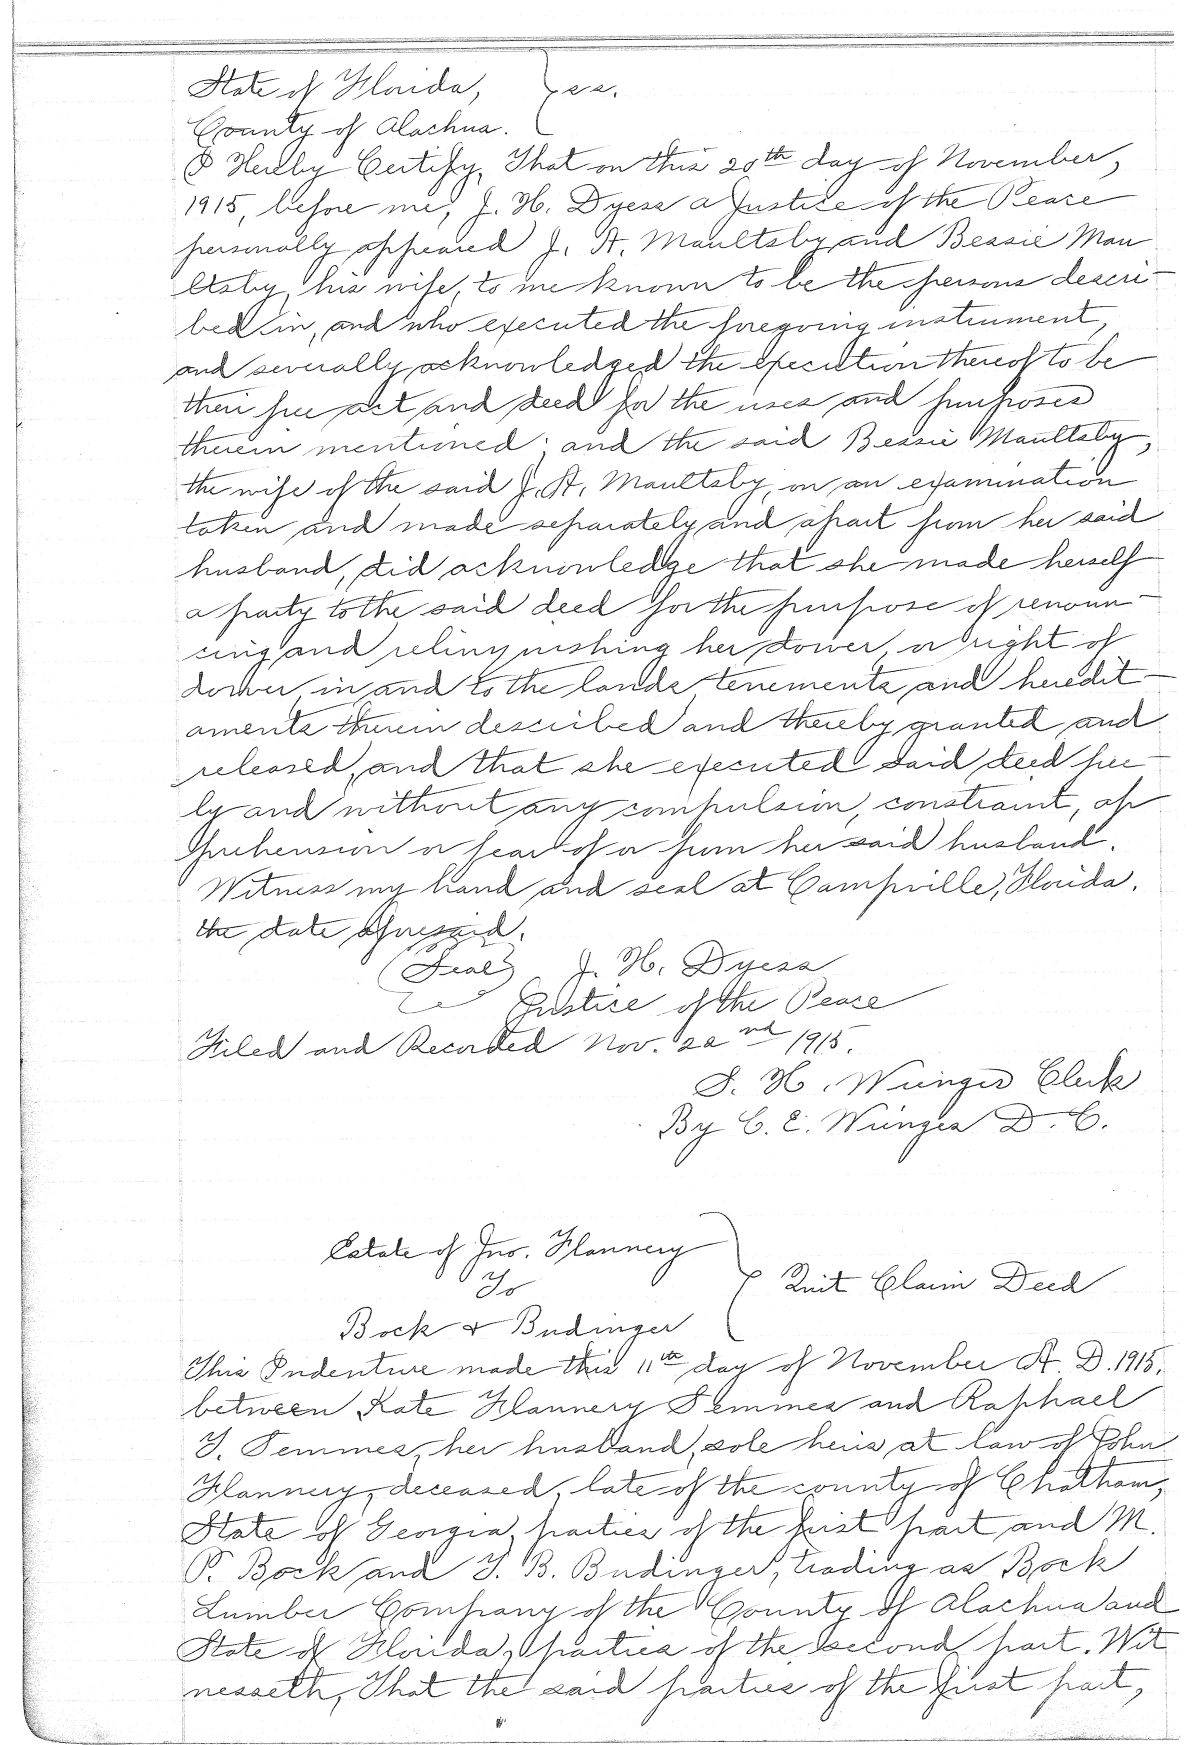 State of Florida, } ss.
County of Alachua.
I Hereby Certify, That on this 20th day of November,
1915, before me, J. H. Dyess a Justice of the Peace
personally appeared J. A. Maultsby and Bessie Mau
ltsby, his wife, to me known to be the persons descri-
bed in, and who executed the foregoing instrument,
and severally acknowledged the execution thereof to be
their free act and deed for the uses and purposes
therein mentioned; and the said Bessie Maultsby,
the wife of the said J. A. Maultsby, on an examination
taken and made separately and apart from her said
husband, did acknowledge that she made herself
a party to the said deed for the purpose of renoun-
cing and relinquishing her dower, or right of
dower, in and to the lands, tenements and heredit-
aments therein described and thereby granted and
released, and that she executed said deed free-
ly and without any compulsion, constraint, ap
prehension or fear of or from her said husband.
Witness my hand and seal at Campville, Florida.
the date aforesaid.
(Seal) J. H. Dyess
Justice of the Peace
Filed and Recorded Nov. 22nd 1915.
S. H. Wienges Clerk
By C. E. Wienges D. C.
Estate of Jno. Flannery
To } Quit Claim Deed
Bock & Budinger
This Indenture made this 11th day of November A. D. 1915,
between Kate Flannery Semmes and Raphael
T. Semmes, her husband, sole heirs at law of John
Flannery, deceased, late of the county of Chatham,
State of Georgia, parties of the first part and M.
P. Bock and T. B. Budinger, trading as Bock
Lumber Company of the County of Alachua and
State of Florida, parties of the second part. Wit
nesseth, That the said parties of the first part,